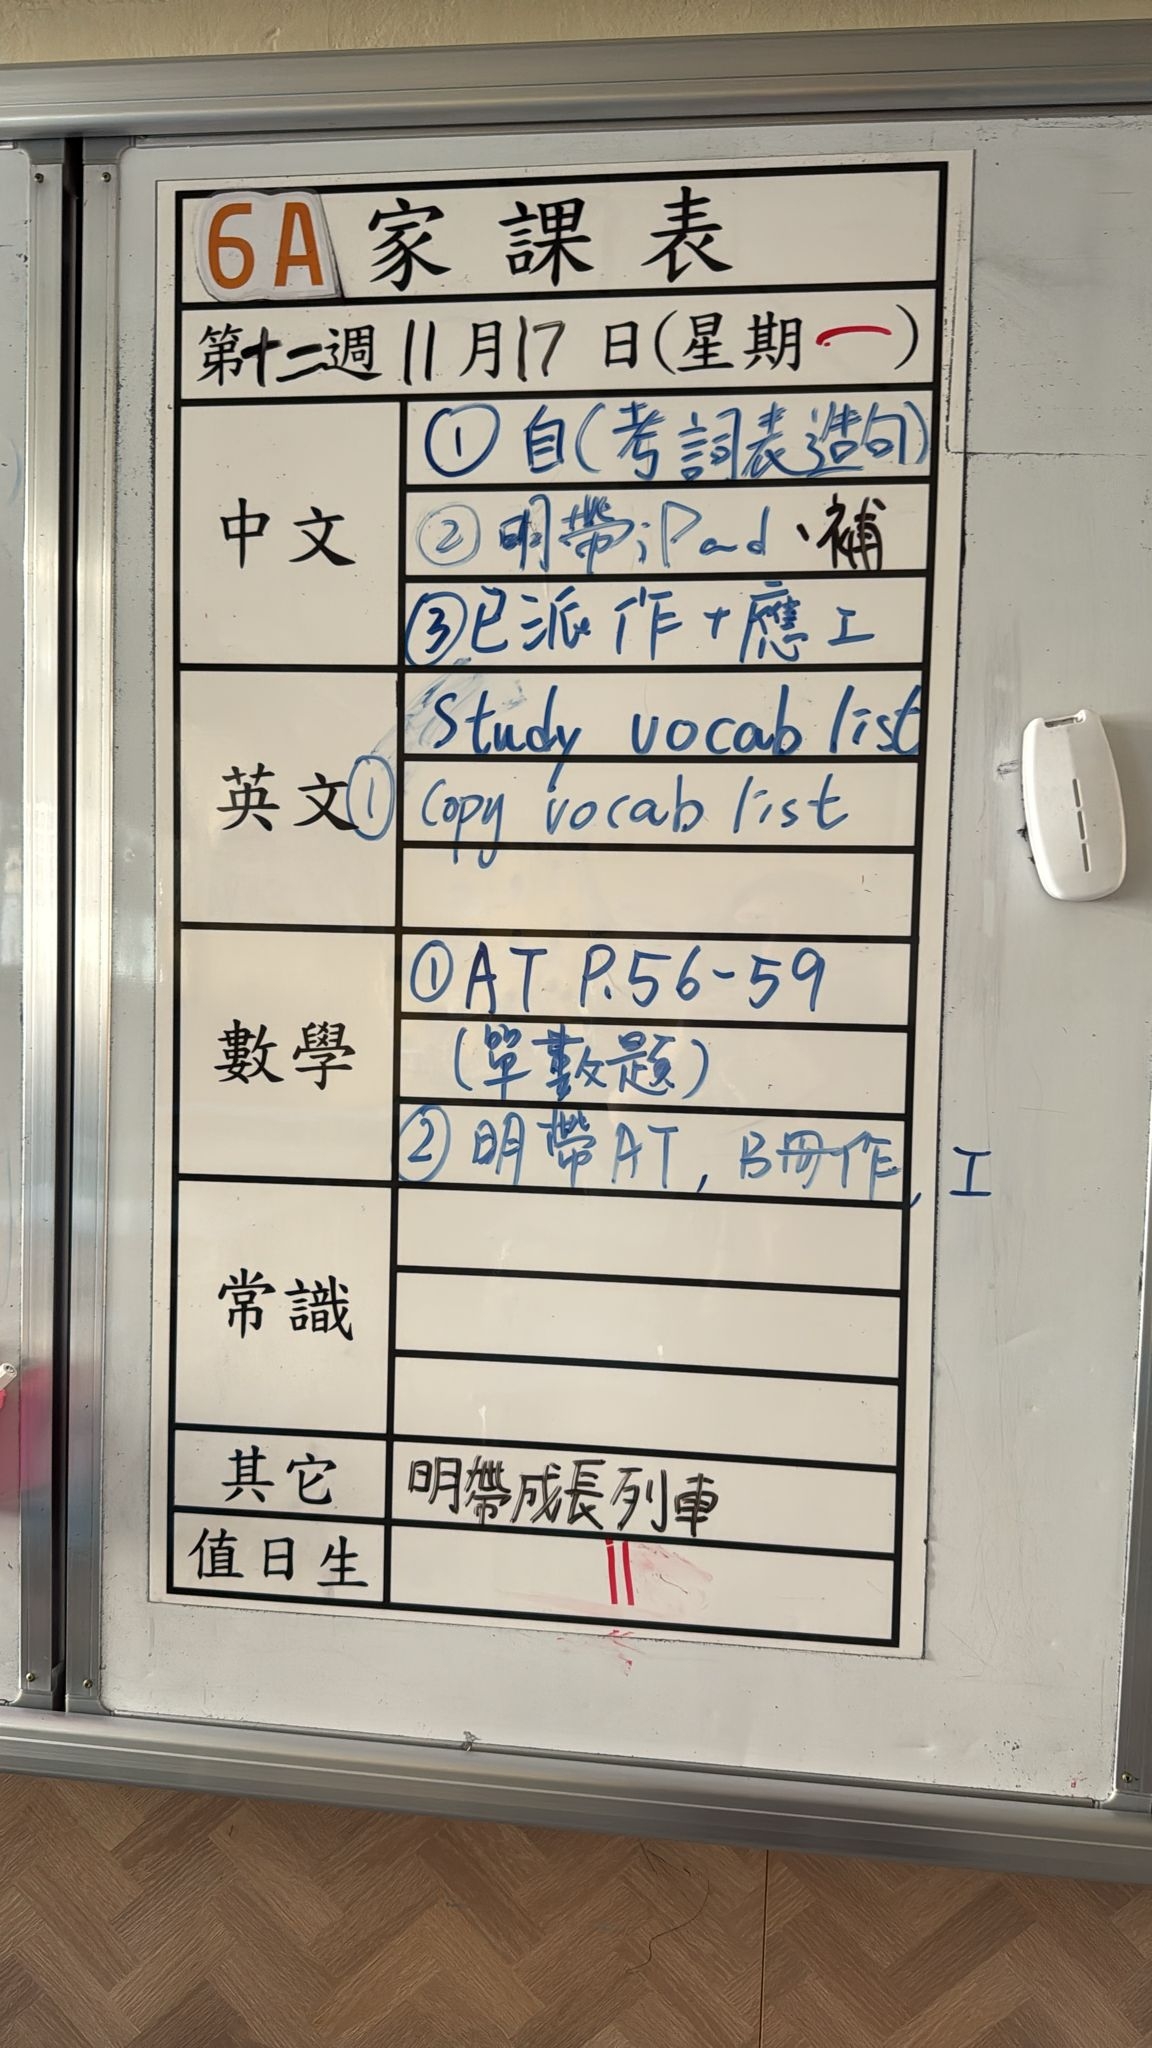 6A 家課表
第十二週 11月17日(星期一)
中文
① 自(考詞表造句)
② 明帶iPad、補
③已派作+應工
英文①
Study vocab list
Copy vocab list
數學
①AT P.56-59
(單數題)
② 明帶AT, B冊作, 工
常識
其它
明帶成長列車
值日生
11